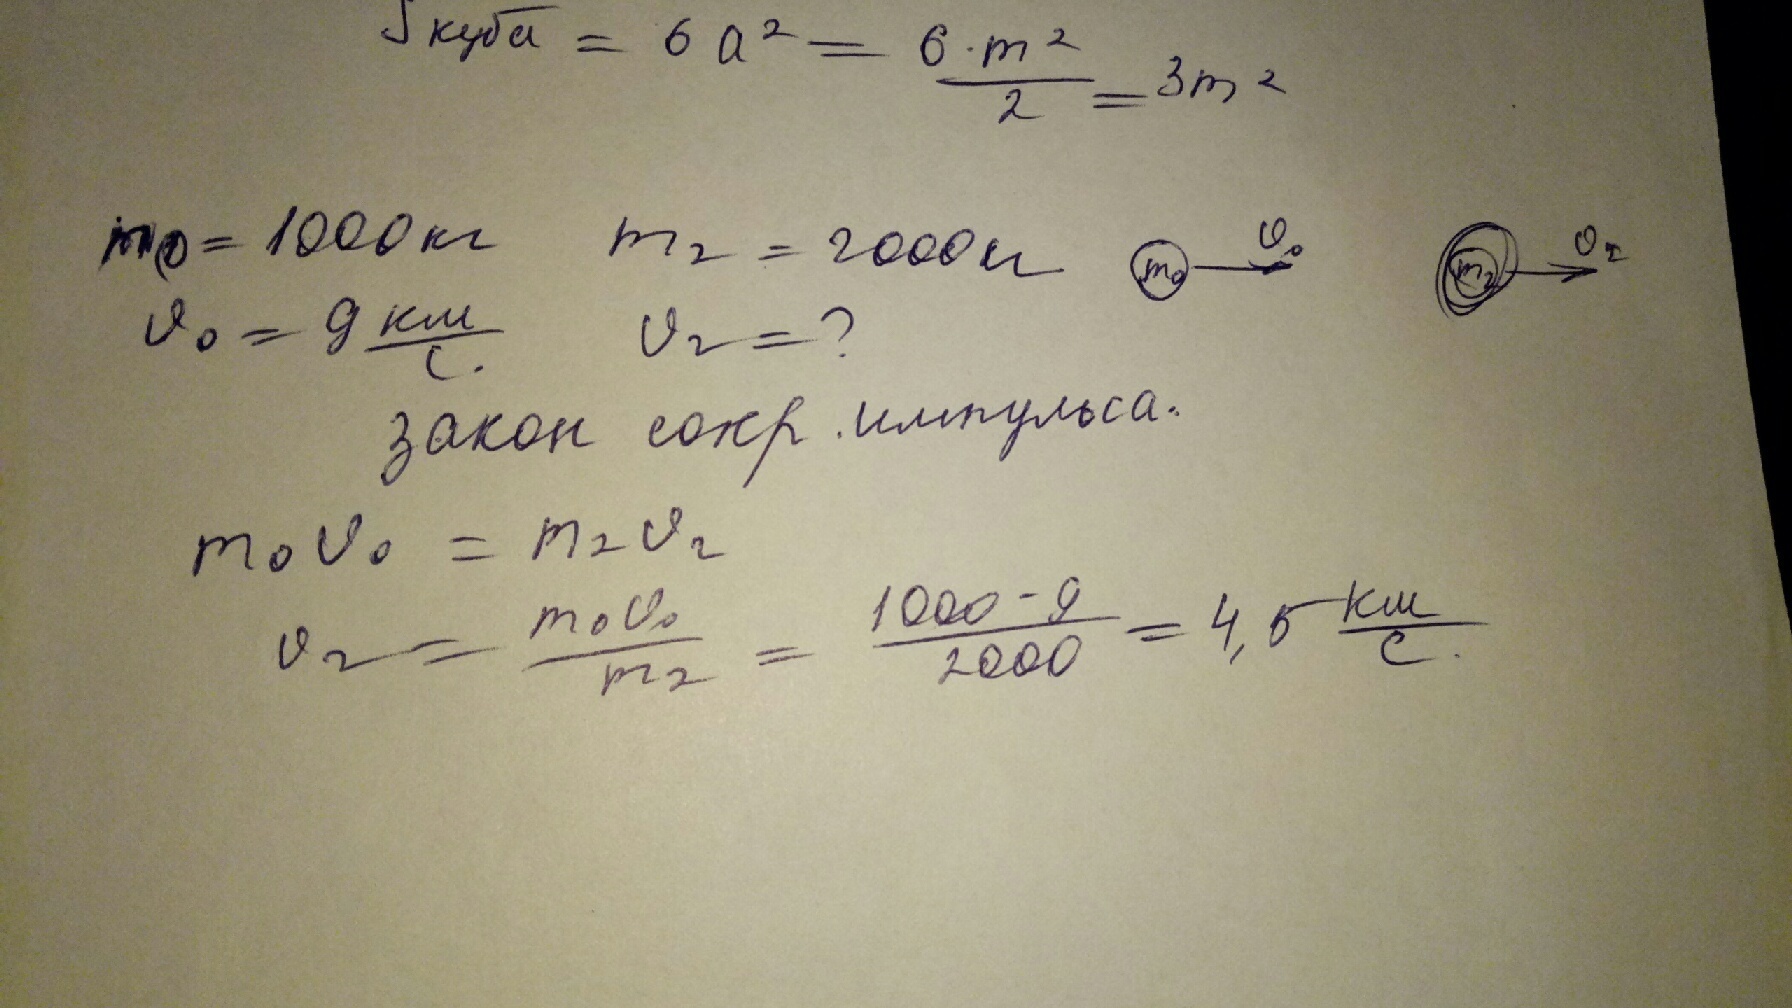 Sкуба = 6a² = 6·m²/2 = 3m²
m₀ = 1000кг m₂ = 2000кг m₀ v₀ m₂ v₂
v₀ = 9 км/с. v₂ = ?
закон сохр. импульса.
m₀v₀ = m₂v₂
v₂ = m₀v₀/m₂ = 1000-9/2000 = 4,5 км/с.